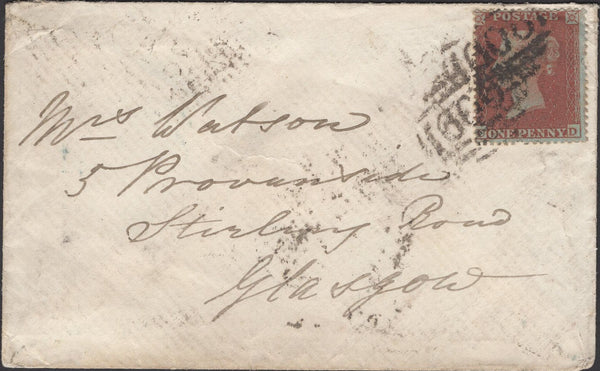 POSTAGE
ONE PENNY
D
Mrs Watson
5 Provanside
Stirling Road
Glasgow